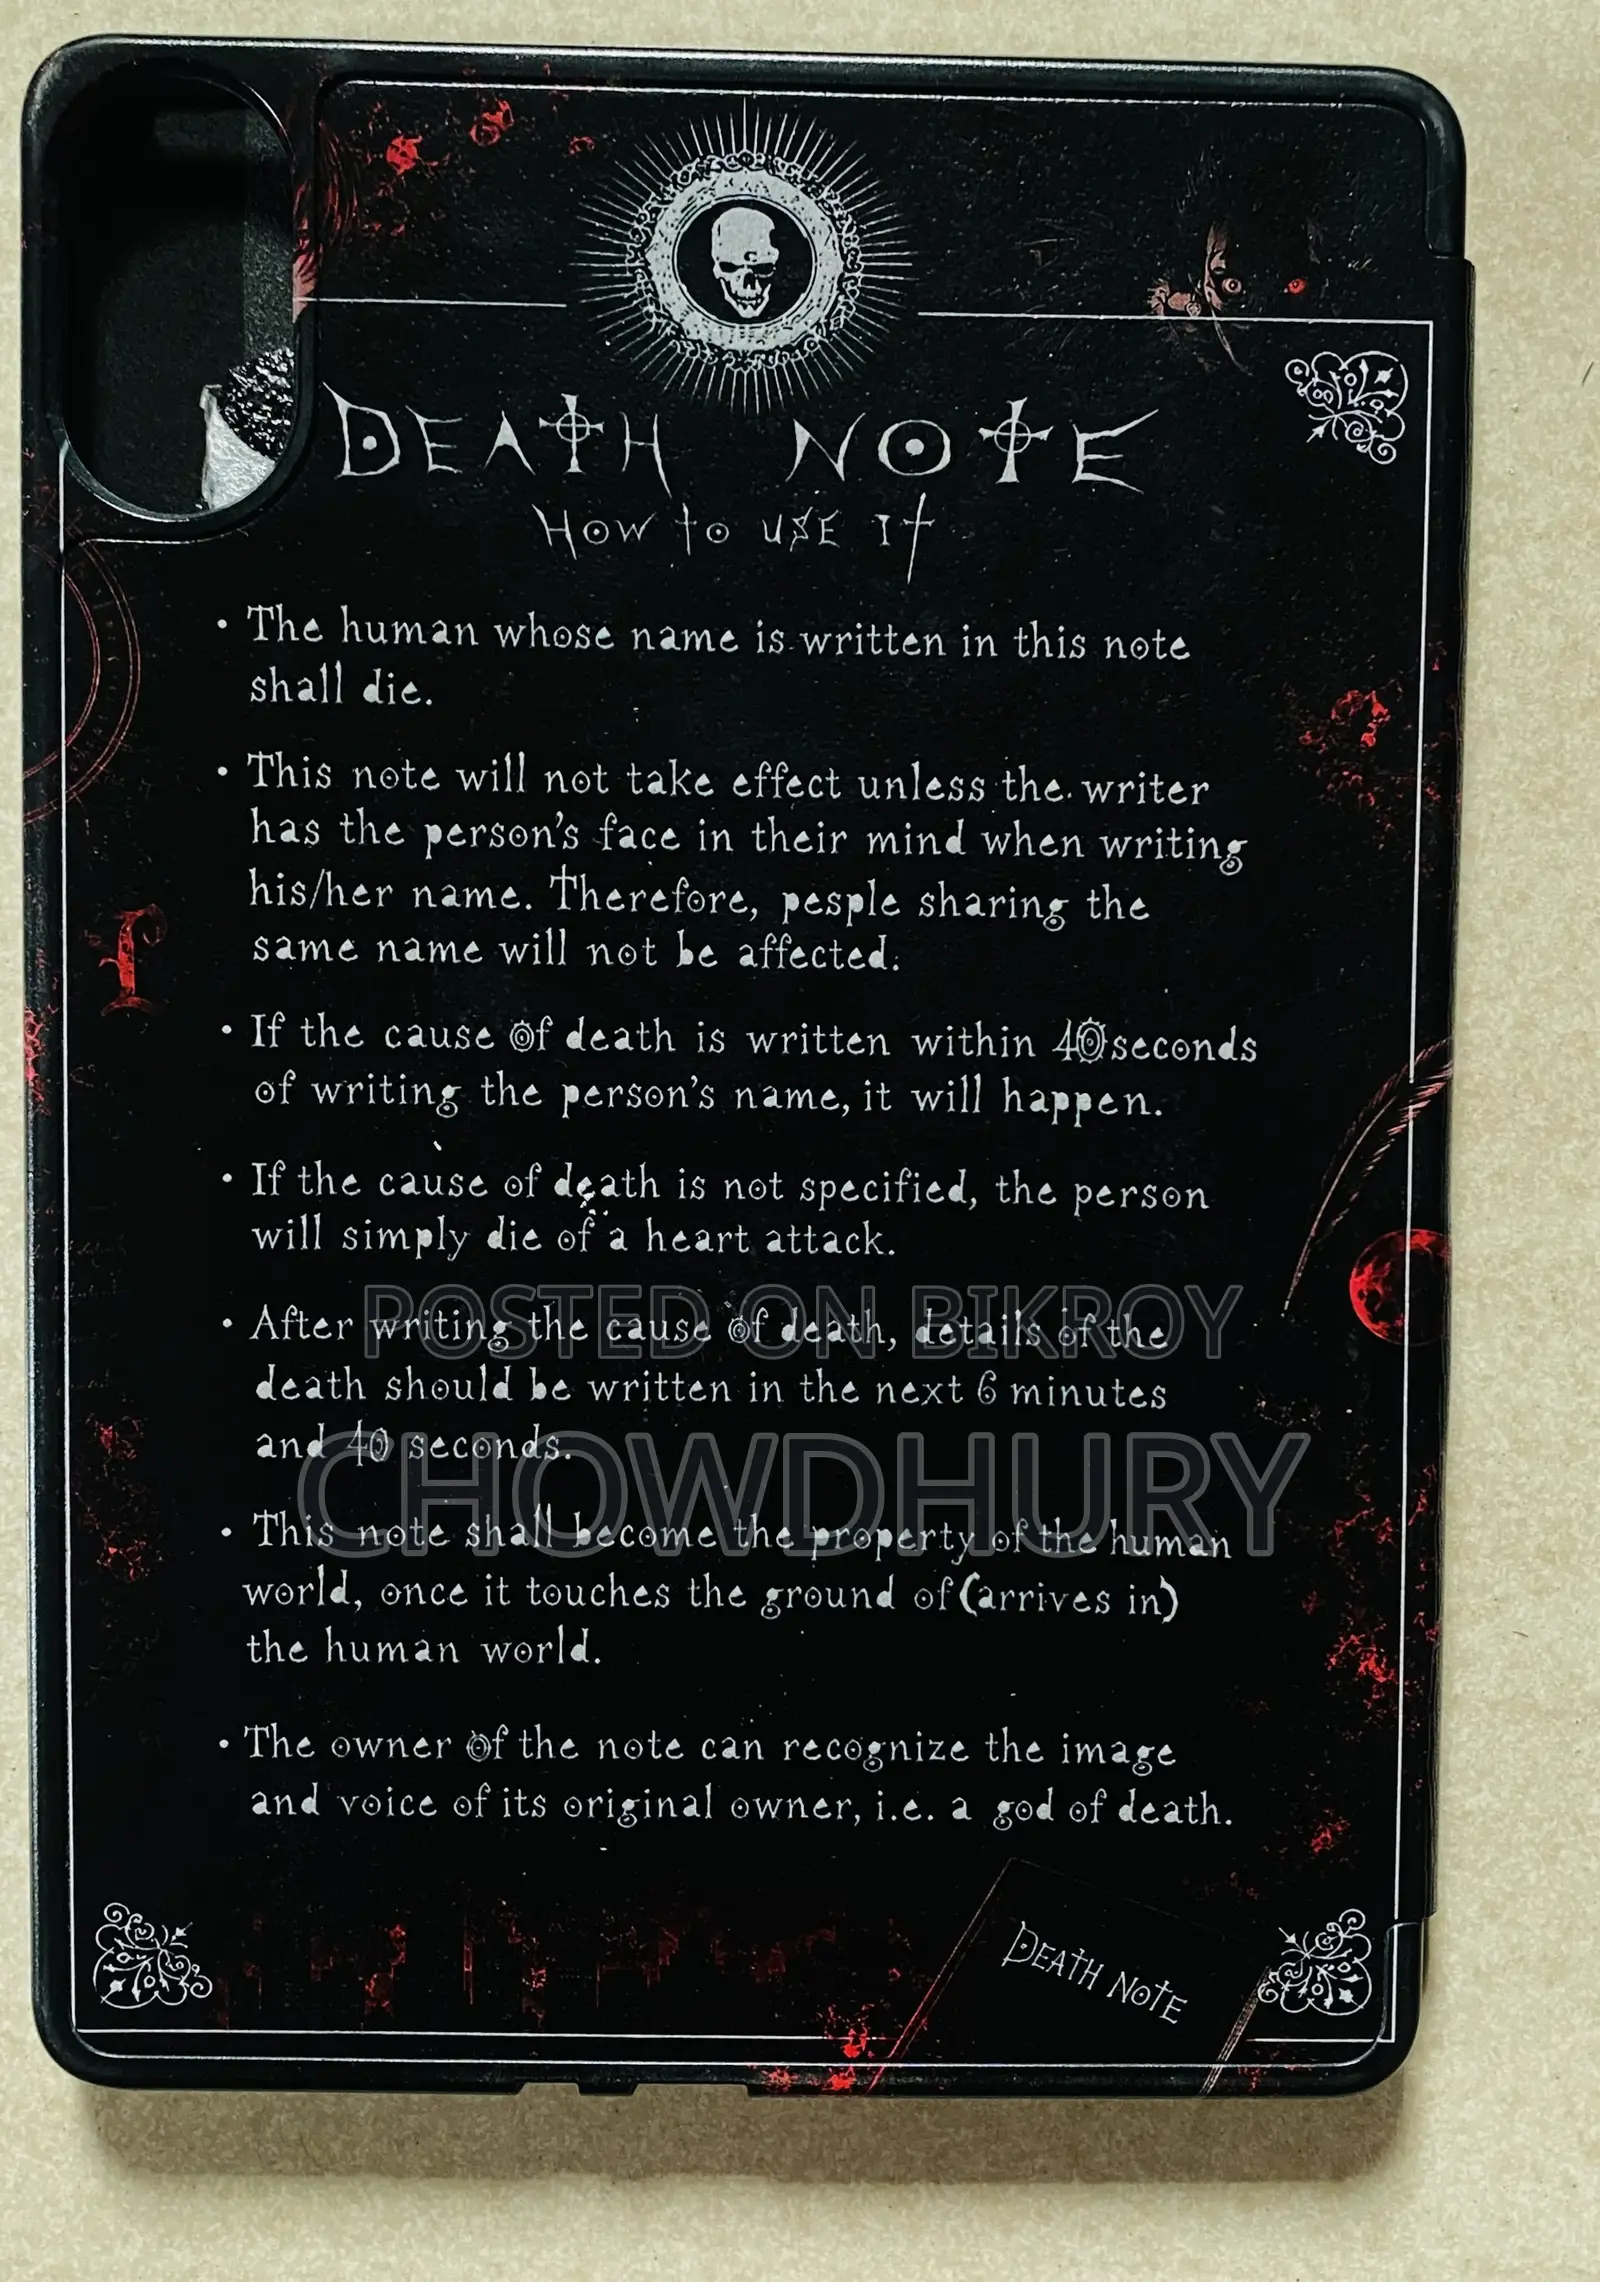 DEATH NOTE
HOW TO USE IT
• The human whose name is written in this note
shall die.
• This note will not take effect unless the writer
has the person's face in their mind when writing
his/her name. Therefore, pesple sharing the
same name will not be affected.
• If the cause of death is written within 40 seconds
of writing the person's name, it will happen.
• If the cause of death is not specified, the person
will simply die of a heart attack.
• After writing the cause of death, details of the
death should be written in the next 6 minutes
and 40 seconds.
• This note shall become the property of the human
world, once it touches the ground of (arrives in)
the human world.
• The owner of the note can recognize the image
and voice of its original owner, i.e. a god of death.
DEATH NOTE
POSTED ON BIKROY
CHOWDHURY